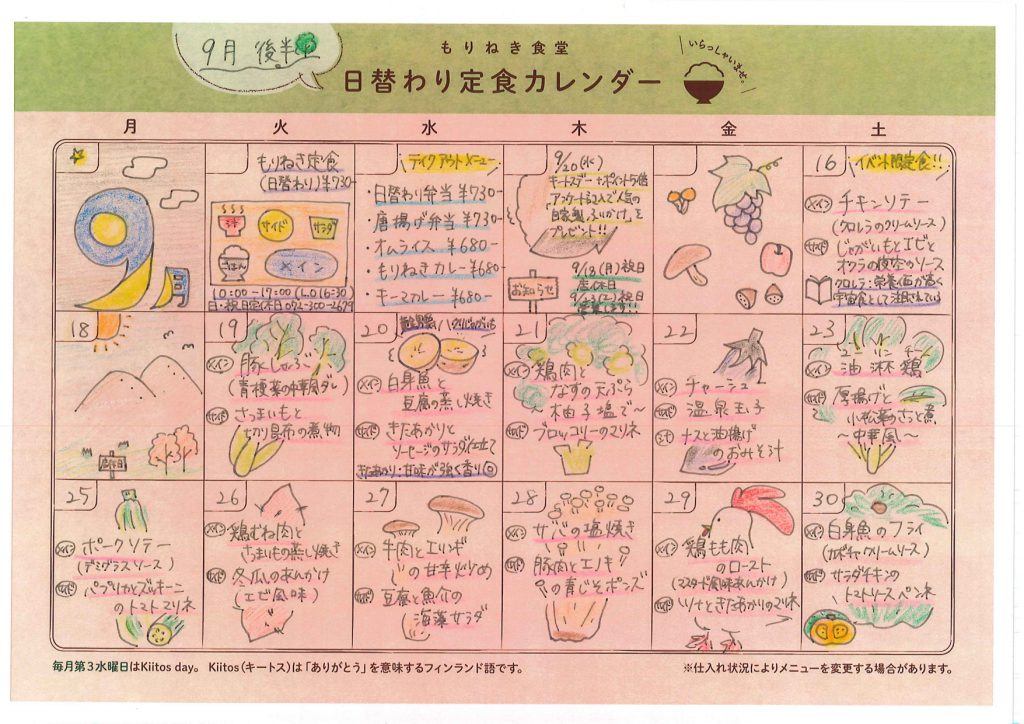 9月 後半
もりねき食堂
日替わり定食カレンダー
いらっしゃいませ。
月 火 水 木 金 土
9月
もりねき定食
(日替わり)¥730-
汁 サイド サラダ
ごはん メイン
10:00-17:00(L.O16:30)
日・祝日定休日 072-300-2679
テイクアウトメニュー
・日替わり弁当 ¥730-
・唐揚げ弁当 ¥730-
・オムライス ¥680-
・もりねきカレー ¥680-
・キーマカレー ¥680-
9/20(水)
キートスデー→ポイント5倍
アンケート記入で人気の
自家製ふりかけを
プレゼント!!
お知らせ
9/18(月)祝日
店休日
16 イベント限定食!!
メイン チキンソテー
(クロレラのクリームソース)
サイド じゃがいもとエビと
オクラの夜空のソース
クロレラ:栄養価が高く
宇宙食として注目されている
18
店休日
19
メイン 豚しゃぶ
(青梗菜の中華風ダレ)
サイド さつまいもと
切り昆布の煮物
20
メイン 白身魚と
豆腐の蒸し焼き
サイド きたあかりと
ソーセージのサラダ仕立て
きたあかり・甘味が強く香り◎
21
メイン 鶏肉と
なすの天ぷら
~柚子塩で~
サイド ブロッコリーのマリネ
22
メイン チャーシュー
サイド 温泉玉子
汁 ナスと油揚げ
のおみそ汁
23
ユーリンチー
メイン 油淋鶏
サイド 厚揚げと
小松菜のさっと煮
~中華風~
25
メイン ポークソテー
(デミグラスソース)
サイド パプリカとズッキーニ
のトマトマリネ
26
メイン 鶏むね肉と
さつまいもの蒸し焼き
サイド 冬瓜のあんかけ
(エビ風味)
27
メイン 牛肉とエリンギ
の甘辛炒め
サイド 豆腐と魚介の
海藻サラダ
28
メイン サバの塩焼き
サイド 豚肉とエノキ
の青じそポンズ
29
メイン 鶏もも肉
のロースト
(マスタード風味あんかけ)
サイド ツナときたあかりのマリネ
30
メイン 白身魚のフライ
(カボチャクリームソース)
サイド サラダチキンの
トマトソースペンネ
毎月第3水曜日はKiitos day。 Kiitos(キートス)は「ありがとう」を意味するフィンランド語です。
※仕入れ状況によりメニューを変更する場合があります。